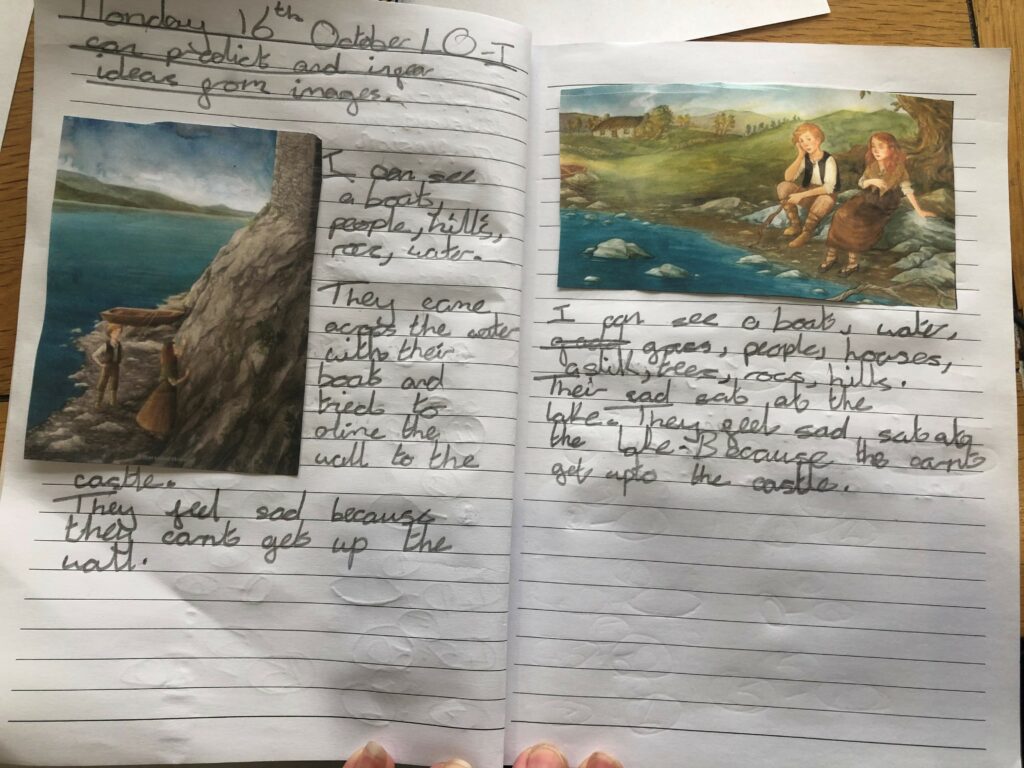 Monday 16th October LO-I
can predict and infer
ideas from images.
I can see
a boat,
people, hills,
rocc, water.
They came
across the water
with their
boat and
tried to
cline the
wall to the
castle.
They feel sad because
they carnts get up the
wall.
I can see a boat, water,
grass, people, houses,
a stik, trees, rocs, hills.
Their sad sat at the
lake. They feel sad
the lake-Because the carnts
get upto the castle.